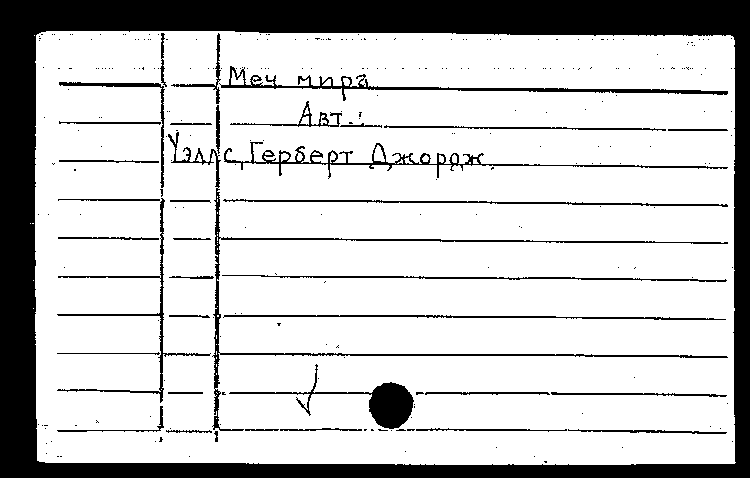 Меч мира
Авт.:
Уэллс, Герберт Джордж.